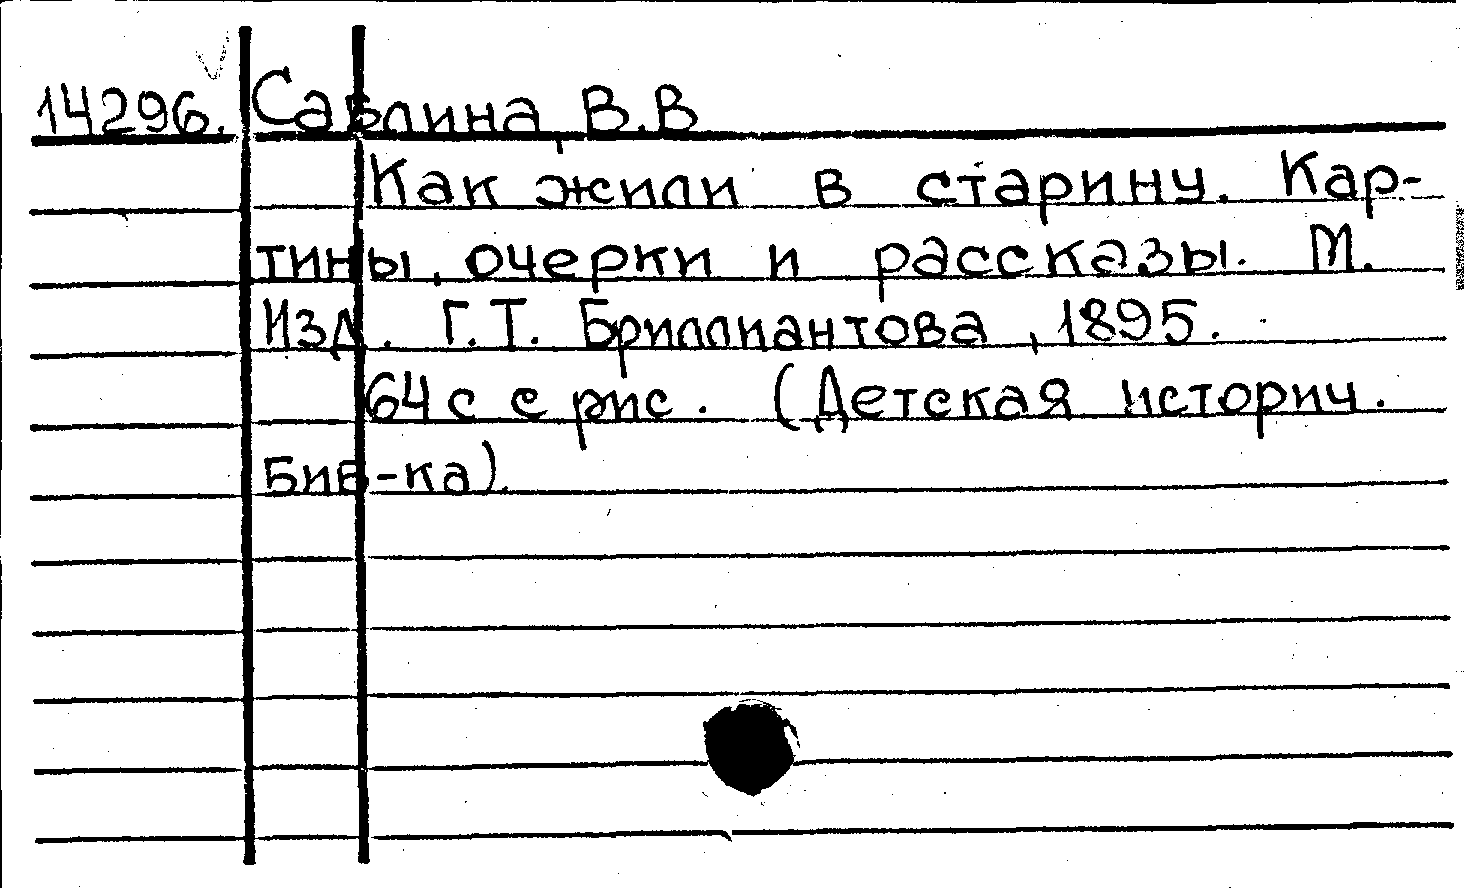 14296. Саблина В.В
Как жили в старину. Кар-
тины, очерки и рассказы. М.
Изд. Г.Т. Бриллиантова, 1895.
64 с с рис. (Детская историч.
Биб-ка).